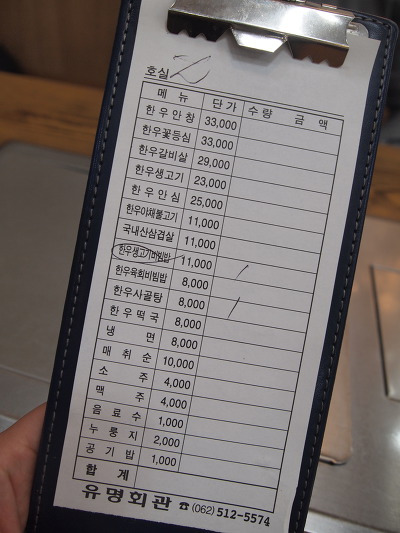 호실 2
메 뉴 단 가 수 량 금 액
한 우 안 창 33,000
한우꽃등심 33,000
한우갈비살 29,000
한우생고기 23,000
한 우 안 심 25,000
한우야채불고기 11,000
국내산삼겹살 11,000
한우생고기비빔밥 11,000
한우육회비빔밥 8,000
한우사골탕 8,000
한 우 떡 국 8,000
냉 면 8,000
매 취 순 10,000
소 주 4,000
맥 주 4,000
음 료 수 1,000
누 룽 지 2,000
공 기 밥 1,000
합 계
유명회관 ☎(062)512-5574